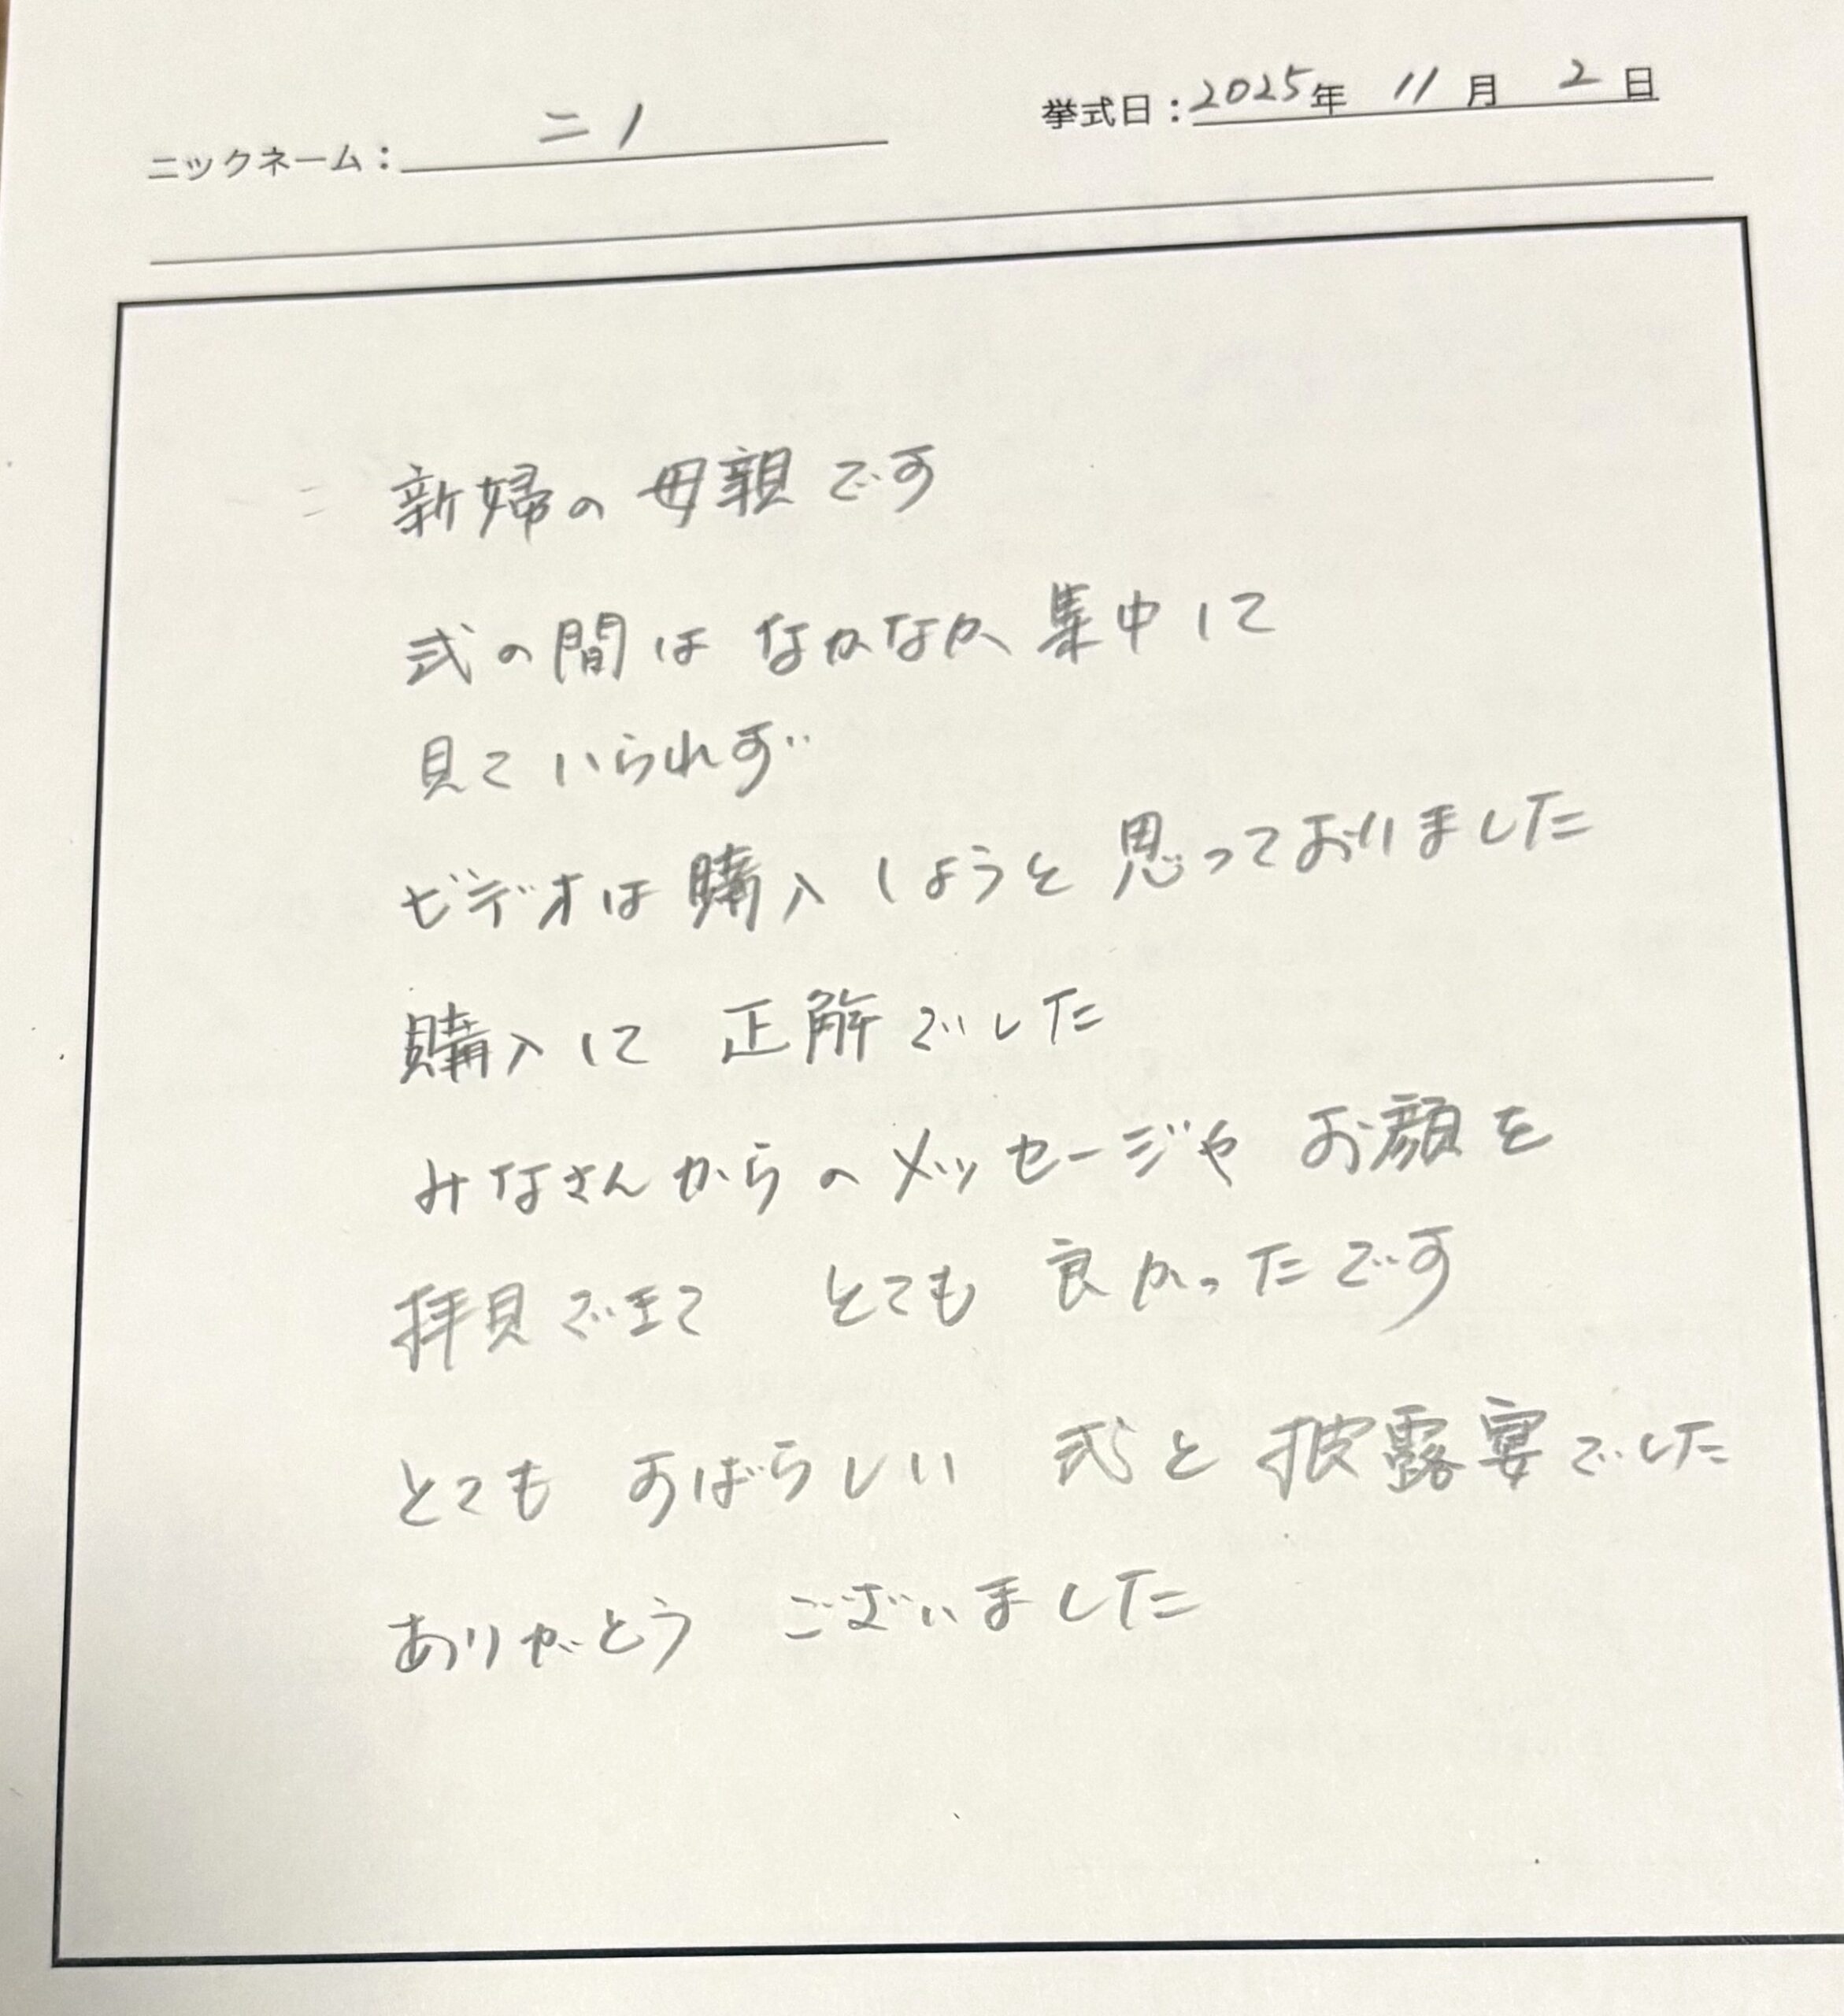 ニックネーム：ニノ 挙式日：2025年 11月 2日
新婦の母親です
式の間は なかなか 集中して
見ていられず
ビデオは購入しようと思っておりました
購入して 正解でした
みなさんからのメッセージや お顔を
拝見できて とても 良かったです
とても すばらしい 式と披露宴でした
ありがとう ございました